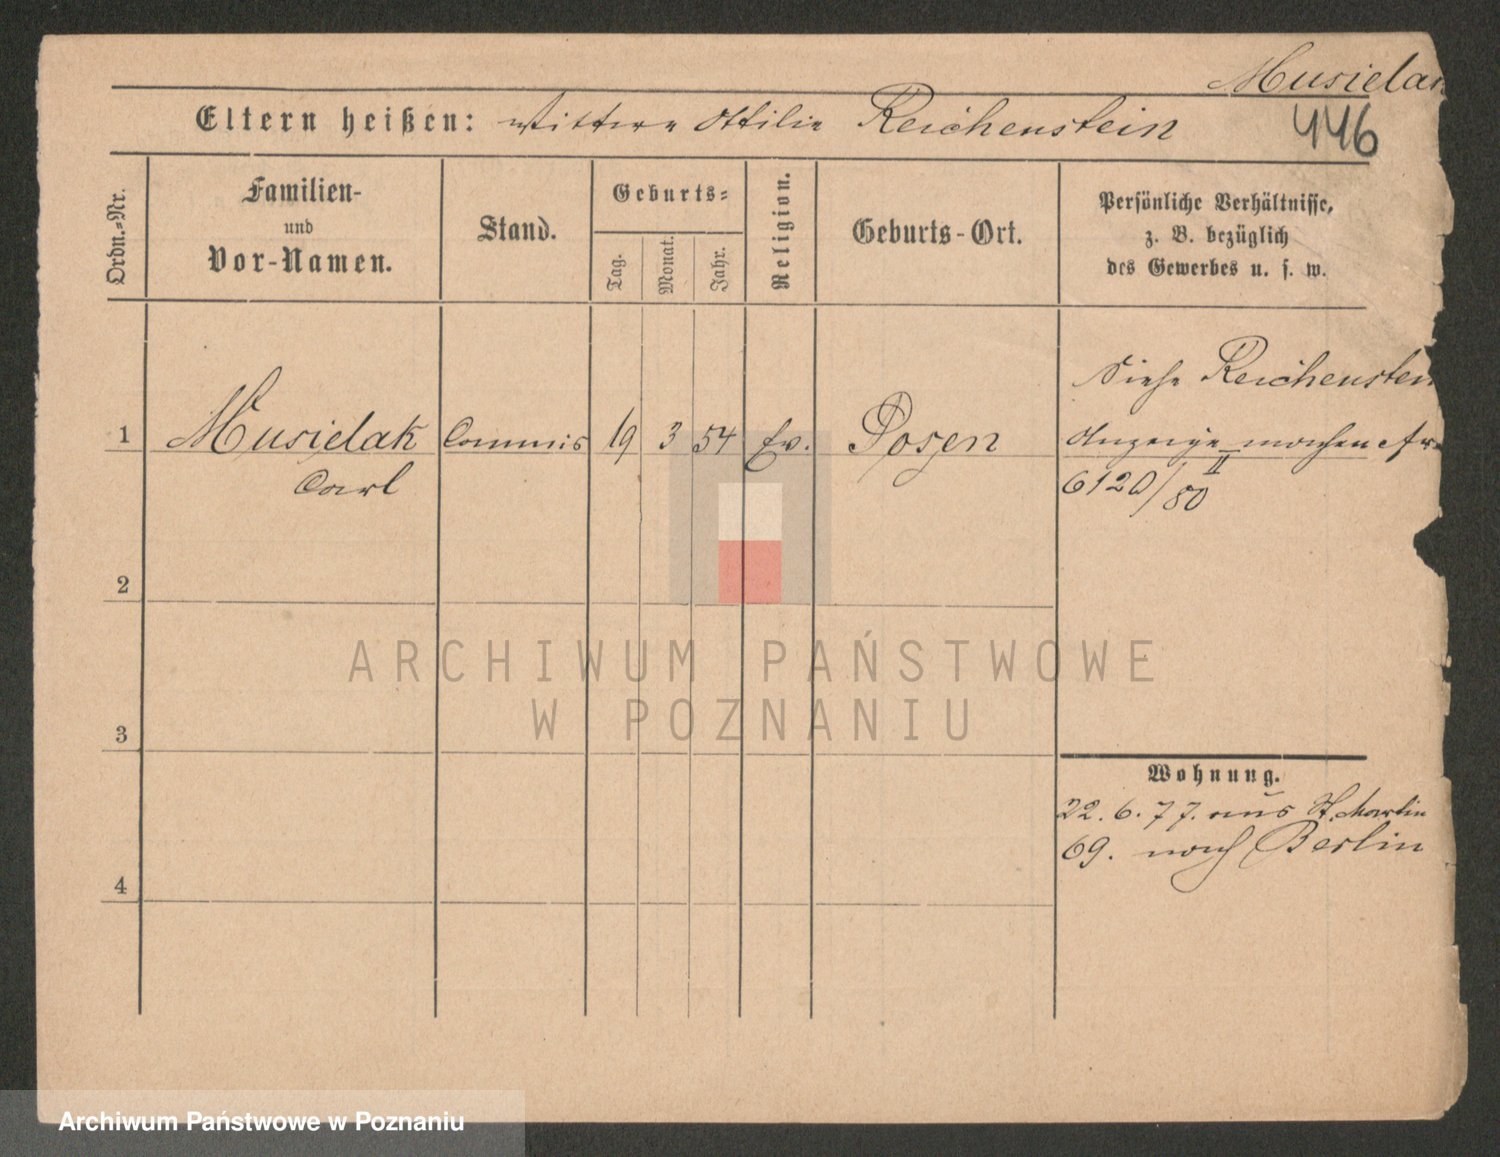 Musielak
446
Eltern heißen: Wittwe Ottilie Reichenstein
Ordn.-Nr.
Familien-
und
Vor-Namen.
Stand.
Geburts-
Tag.
Monat.
Jahr.
Religion.
Geburts-Ort.
Persönliche Verhältnisse,
z. B. bezüglich
des Gewerbes u. s. w.
1 Musielak Commis 19 3 54 Ev. Posen
Carl
Siehe Reichenstein
Anzeige machen
6120/II 80
2
3
4
Wohnung.
22. 6. 77. aus St. Martin
69. nach Berlin
ARCHIWUM PAŃSTWOWE
W POZNANIU
Archiwum Państwowe w Poznaniu